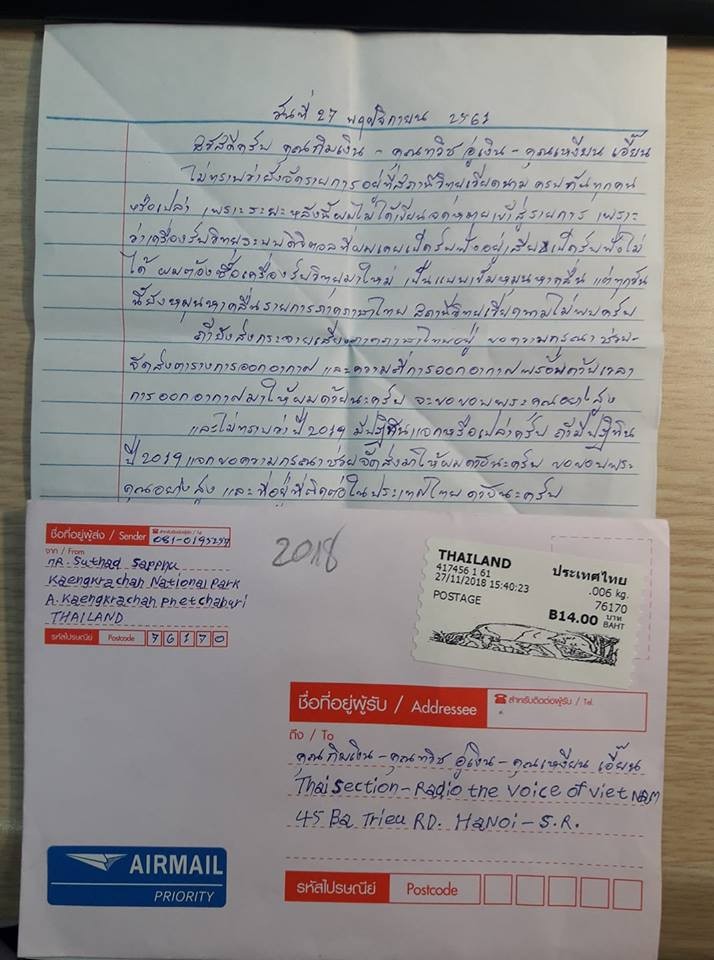 วันที่ 27 พฤศจิกายน 2561
สวัสดีครับ คุณกิมเงิน - คุณทวิช อู่เงิน - คุณเหงียน เอี๊ยน
ไม่ทราบว่ายังจัดรายการอยู่ที่สถานีวิทยุเวียดนาม ครบกันทุกคน
หรือเปล่า เพราะระยะหลังนี้ผมไม่ได้เขียนจดหมายเข้าสู่รายการ เพราะ
ว่าเครื่องรับวิทยุระบบดิจิตอลที่ผมเคยเปิดรับฟังอยู่เสีย เปิดรับฟังไม่
ได้ ผมต้องซื้อเครื่องรับวิทยุมาใหม่ เป็นแบบเข็มหมุนหาคลื่น แต่ทุกวัน
นี้ยังหมุนหาคลื่นรายการภาคภาษาไทย สถานีวิทยุเวียดนามไม่พบครับ
ถ้ายังส่งกระจายเสียงภาคภาษาไทยอยู่ ขอความกรุณาช่วย
จัดส่งตารางการออกอากาศ และความถี่การออกอากาศพร้อมด้วยเวลา
การออกอากาศมาให้ผมด้วยนะครับ จะขอบพระคุณอย่างสูง
และไม่ทราบว่าปี 2019 มีปฏิทินแจกหรือเปล่าครับ ถ้ามีปฏิทิน
ปี 2019 แจกขอความกรุณาช่วยจัดส่งมาให้ผมด้วยนะครับ ขอขอบพระ
คุณอย่างสูง และที่อยู่ที่ติดต่อในประเทศไทย ด้วยนะครับ
ชื่อที่อยู่ผู้ส่ง / Sender
สำหรับติดต่อผู้ส่ง / Tel.
จาก / From
MR. Suthad Sapphu
Kaengkrachan National Park
A. Kaengkrachan Phetchaburi
THAILAND
รหัสไปรษณีย์ Postcode 76170
2018
THAILAND ประเทศไทย
417456 1 61 .006 kg.
27/11/2018 15:40:23 76170
POSTAGE B14.00 บาท BAHT
ชื่อที่อยู่ผู้รับ / Addressee
สำหรับติดต่อผู้รับ / Tel.
ถึง / To
คุณกิมเงิน - คุณทวิช อู่เงิน - คุณเหงียน เอี๊ยน
Thai Section - Radio the Voice of Viet NAM
45 Ba Trieu RD. HaNoi - S.R.
AIRMAIL
PRIORITY
รหัสไปรษณีย์ Postcode